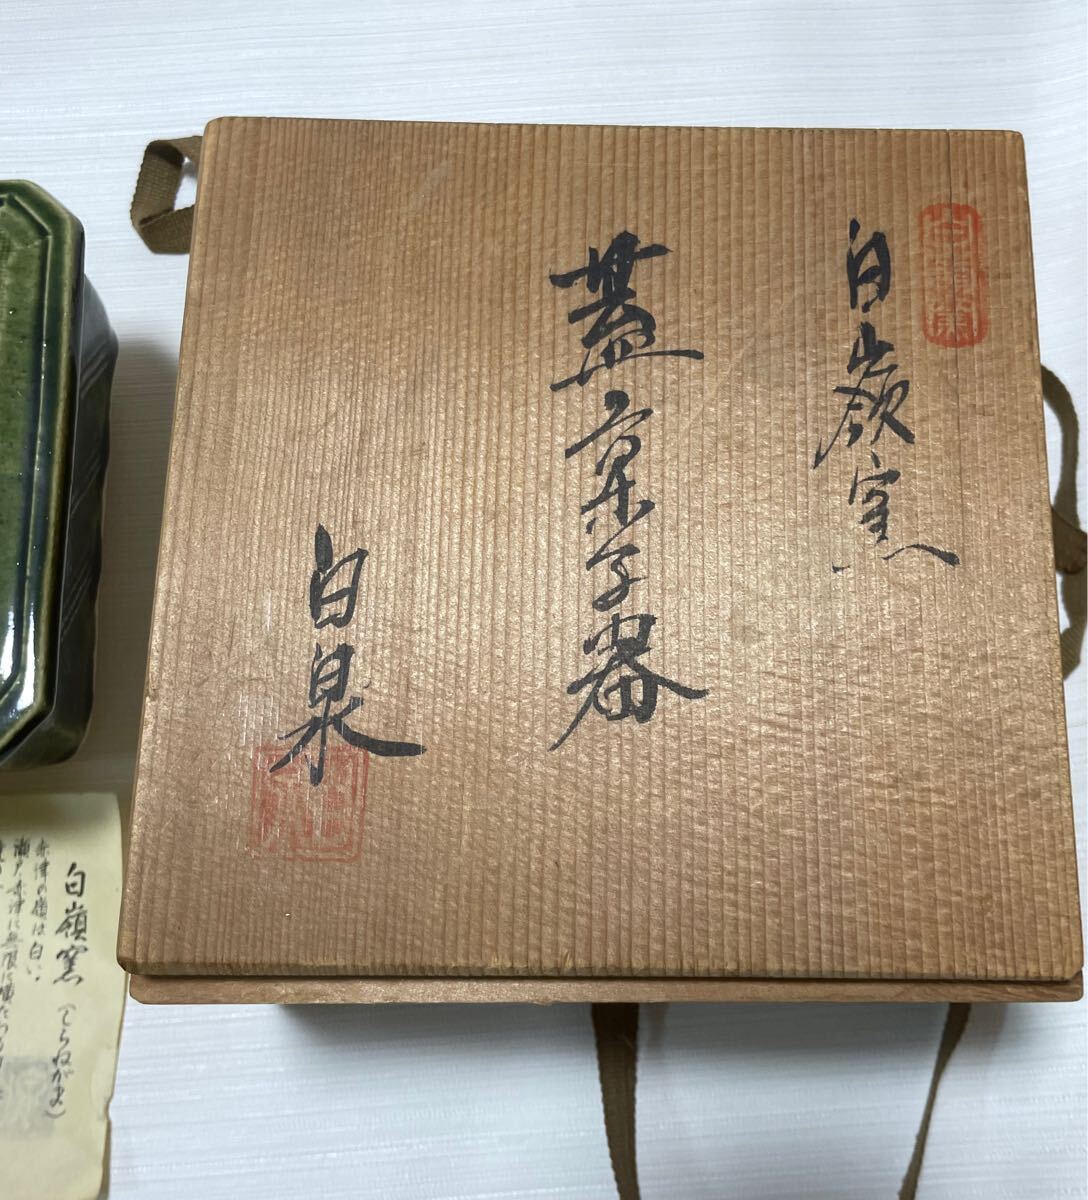 白嶺窯
蓋菓子器
白泉
白嶺窯(しらねがま)
赤津の嶺は白い。
瀬戸赤津に無限に